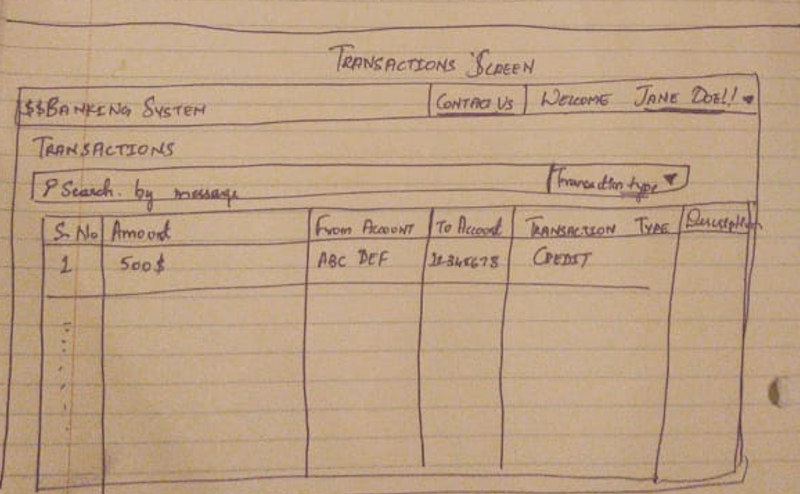 TRANSACTIONS SCREEN
$$BANKING SYSTEM CONTACT US WELCOME JANE DOE!!
TRANSACTIONS
Search by message Transaction type
S. No Amount From Account To Account TRANSACTION TYPE Description
1 500$ ABC DEF 12345678 CREDIT